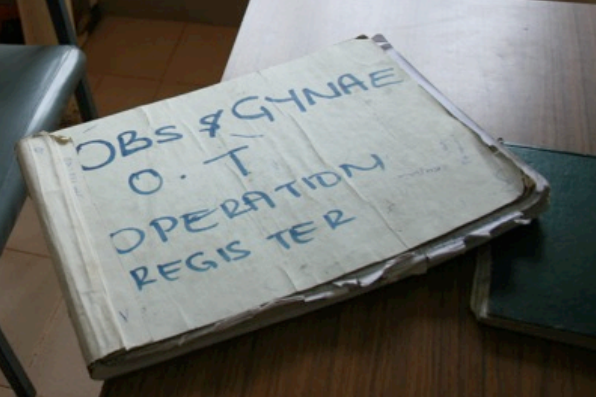 OBS & GYNAE
O.T
OPERATION
REGISTER